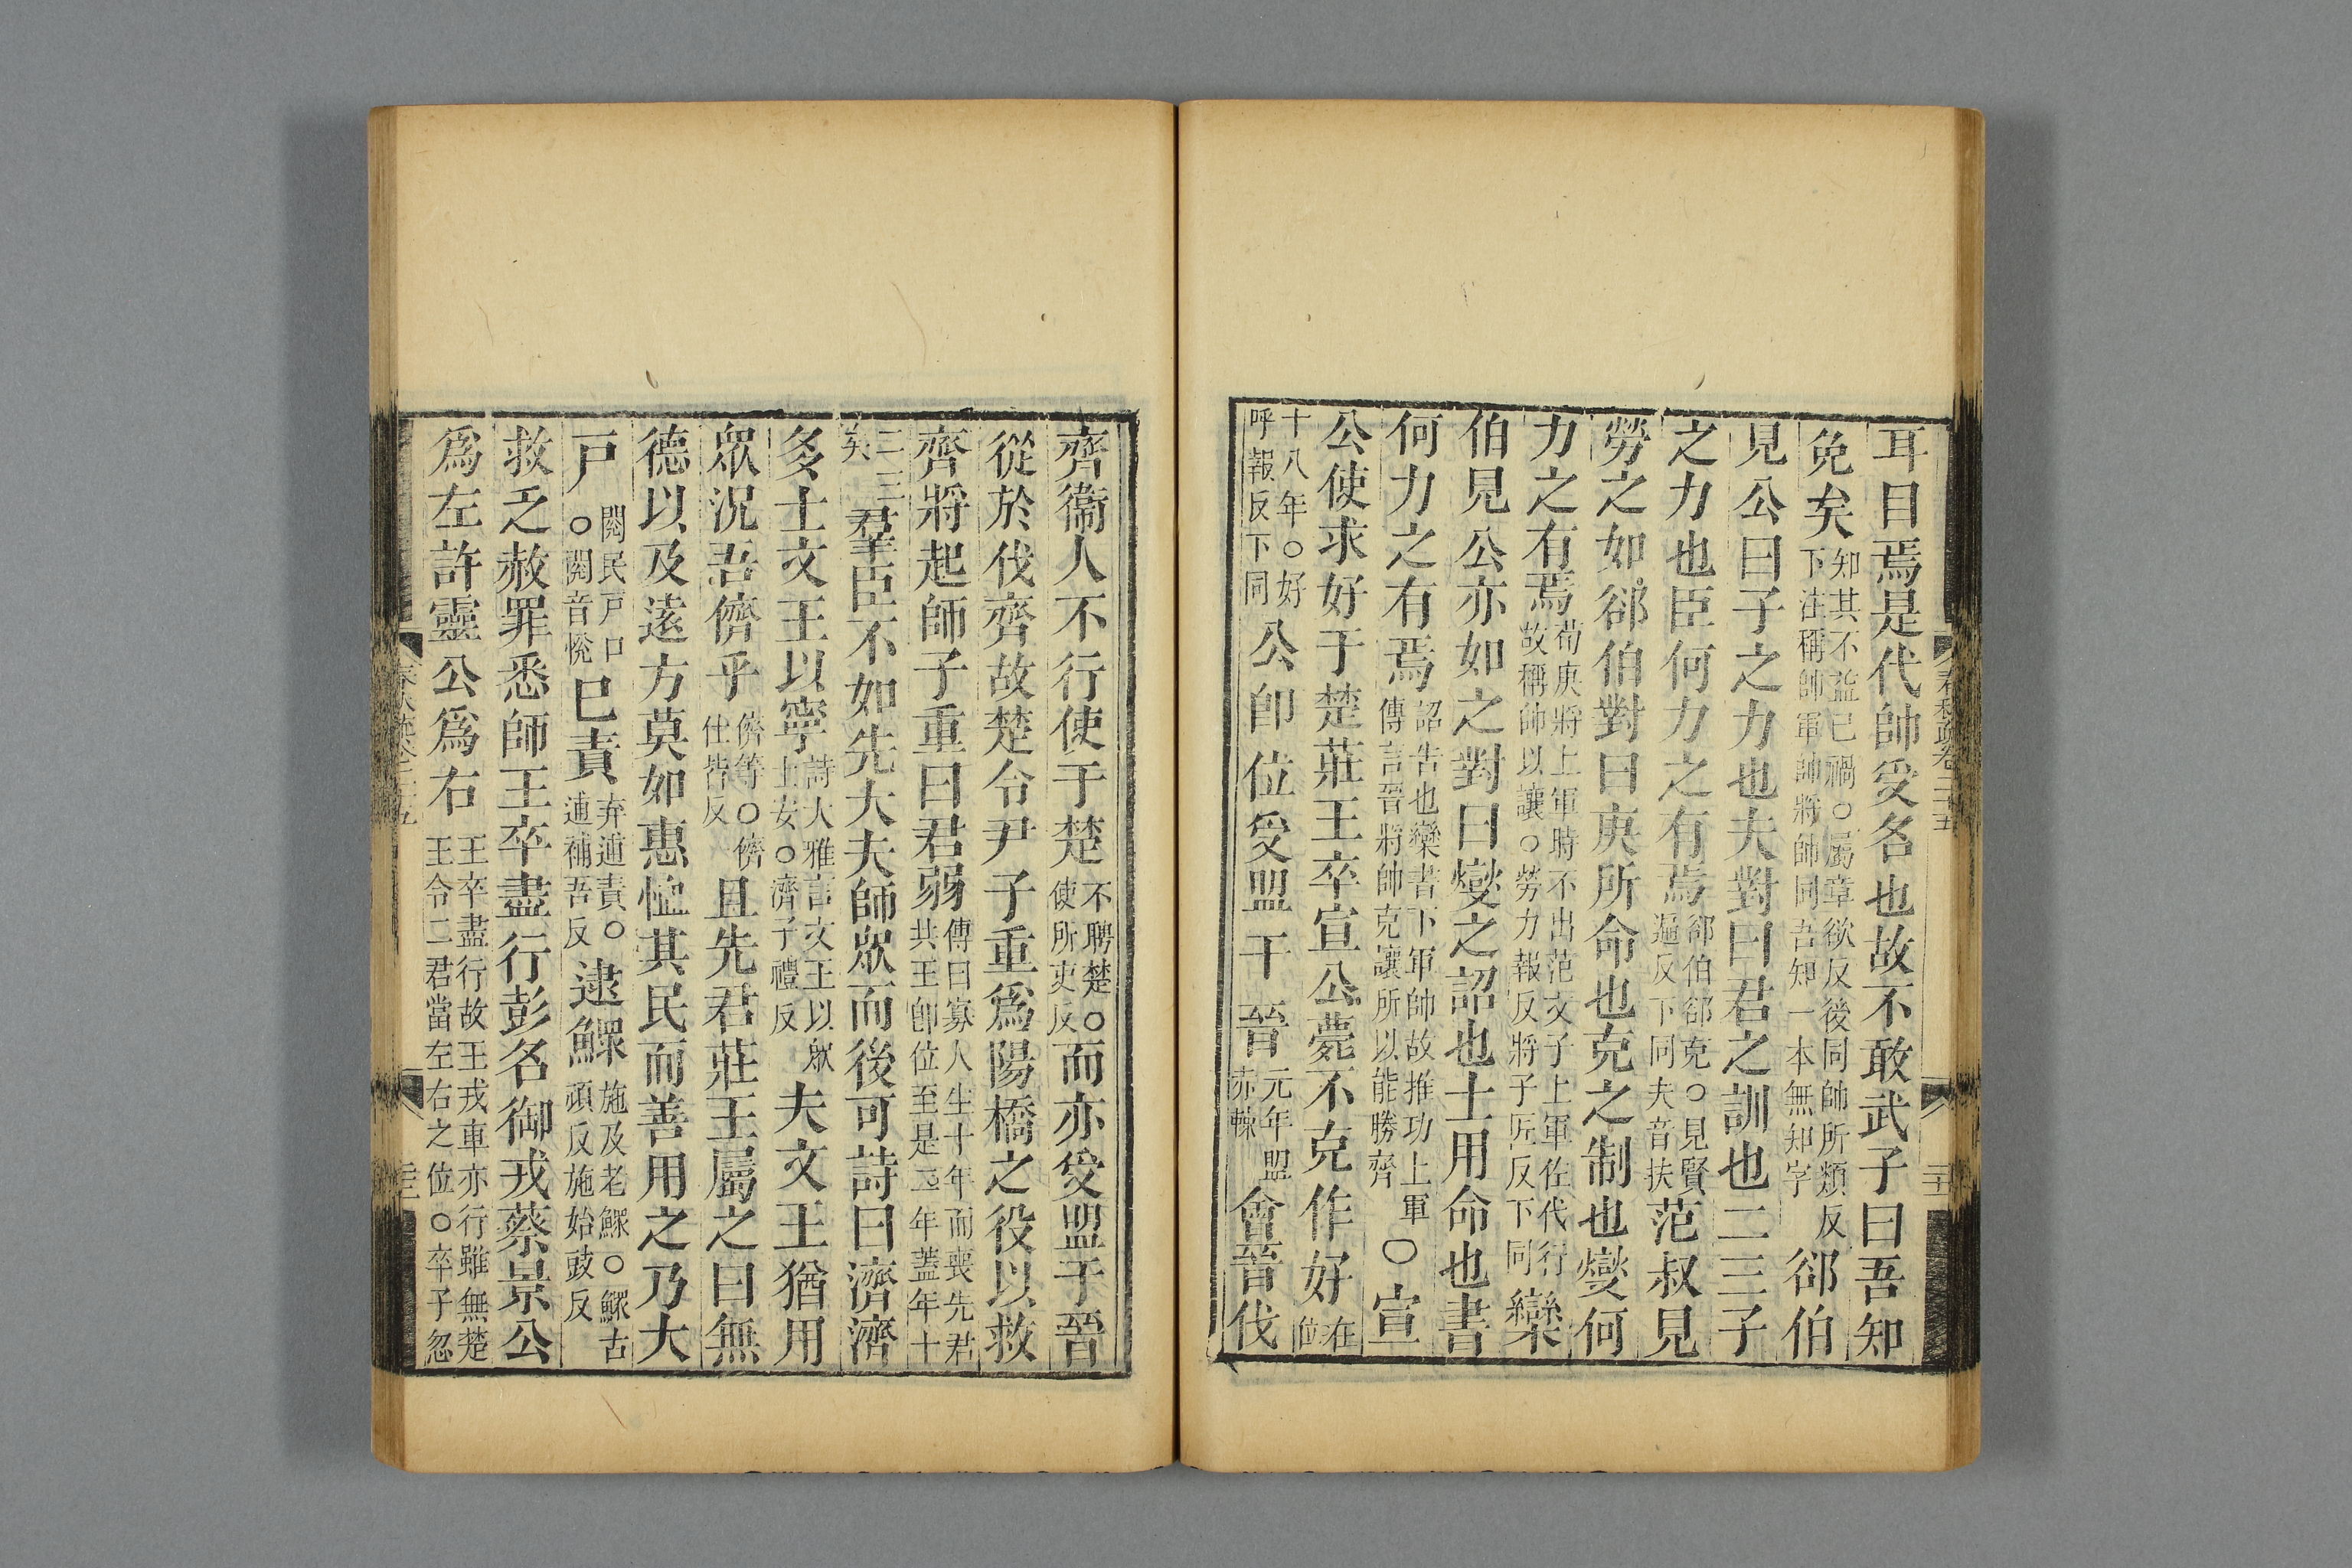 耳目焉是代帥受名也故不敢武子曰吾知
免矣知其不益已禍○屬章欲反後同帥所類反下注稱帥軍帥將帥同吾知一本無知字郤伯
見公曰子之力也夫對曰君之訓也二三子
之力也臣何力之有焉郤伯郤克○見賢遍反下同夫音扶范叔見
勞之如郤伯對曰庚所命也克之制也燮何
力之有焉荀庚將上軍時不出范文子上軍佐代行故稱帥以讓○勞力報反將子匠反下同欒
伯見公亦如之對曰燮之詔也士用命也書
何力之有焉詔告也欒書下軍帥故推功上軍傳言晉將帥克讓所以能勝齊○宣
公使求好于楚莊王卒宣公薨不克作好在位
十八年○好呼報反下同公卽位受盟于晉元年盟赤棘會晉伐
齊衞人不行使于楚不聘楚○使所吏反而亦受盟于晉
從於伐齊故楚令尹子重爲陽橋之役以救
齊將起師子重曰君弱傳曰寡人生十年而喪先君共王卽位至是二年蓋年十
二三矣羣臣不如先大夫師眾而後可詩曰濟濟
多士文王以寧詩大雅言文王以眾士安○濟子禮反夫文王猶用
眾況吾儕乎儕等○儕仕皆反且先君莊王屬之曰無
德以及遠方莫如惠恤其民而善用之乃大
戶閱民戶口○閱音悅已責弃逋責○逋補吾反逮鰥施及老鰥○鰥古頑反施始豉反
救乏赦罪悉師王卒盡行彭名御戎蔡景公
爲左許靈公爲右王卒盡行故王戎車亦行雖無楚王令二君當左右之位○卒子忽